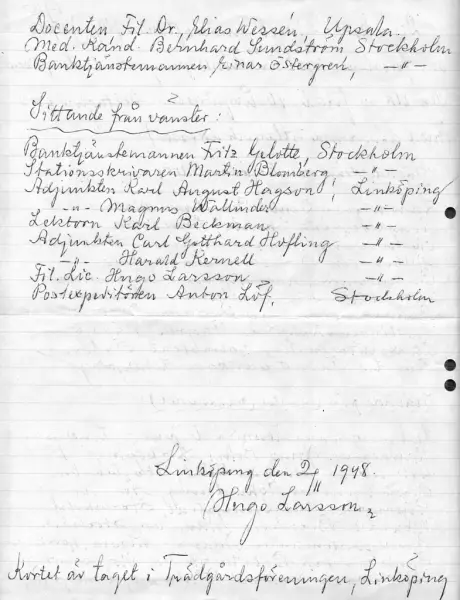 Docenten Fil. Dr. Elias Wessén, Upsala.
Med. Kand. Bernhard Sundström Stockholm
Banktjänstemannen Einar Östergren, —"—
Sittande från vänster:
Banktjänstemannen Fritz Gelotte, Stockholm
Stationsskrivaren Martin Blomberg —"—
Adjunkten Karl August Hagson, Linköping
—"— Magnus Wallinder —"—
Lektorn Karl Beckman —"—
Adjunkten Carl Gotthard Höfling —"—
—"— Harald Kernell —"—
Fil. Lic. Hugo Larsson —"—
Postexpeditören Anton Löf, Stockholm
Linköping den 2/11 1948.
Hugo Larsson
Kortet är taget i Trädgårdsföreningen, Linköping